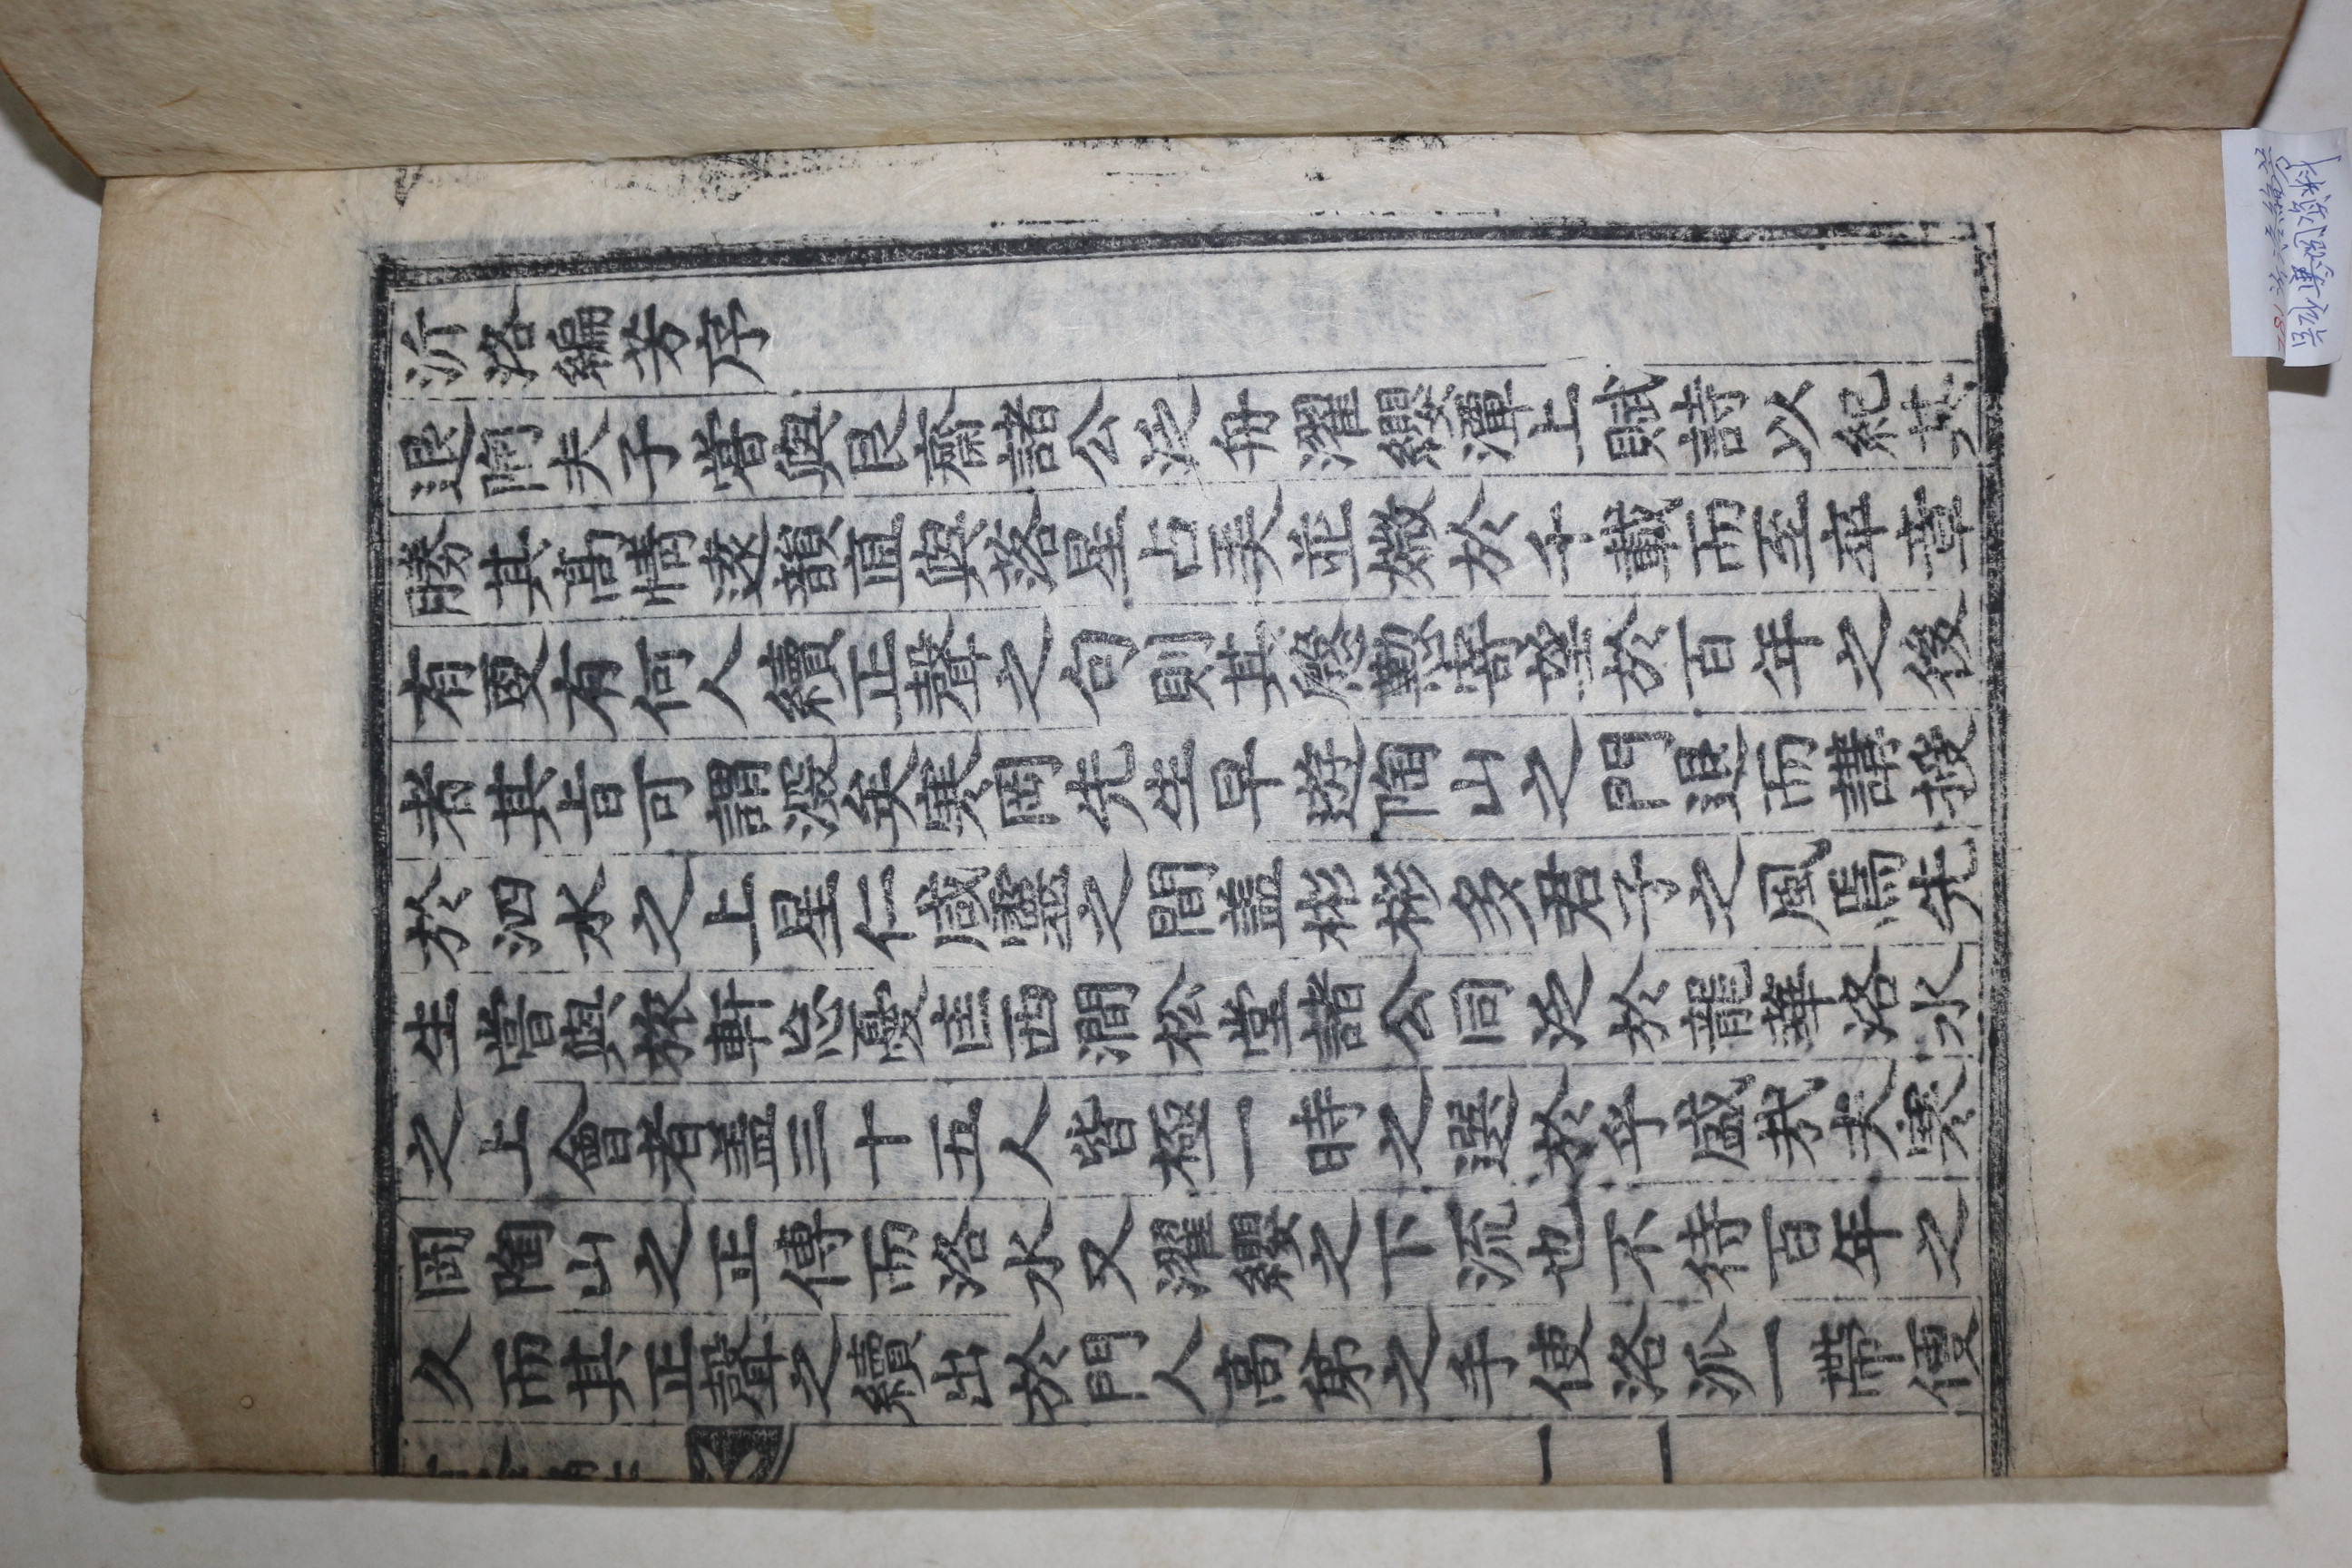 沂洛編芳序
退陶夫子嘗與艮齋諸公泛舟濯纓潭上賦詩以紀其
勝其高情遠韻直與落星占美並媺於千載而至卒章
有更有何人續正聲之句則其慇懃寄望於百年之後
者其旨可謂深矣寒岡先生早遊陶山之門退而講授
於泗水之上星仁咸靈之間蓋彬彬多君子之風焉先
生嘗與旅軒忘憂匡西澗松堂諸公同泛於龍華洛水
之上會者盖三十五人皆極一時之選於乎盛哉夫寒
岡陶山之正傳而洛水又濯纓之下流也不待百年之
久而其正聲之續出於門人高弟之手使洛派一帶便
一
沂洛編芳
寒岡資料